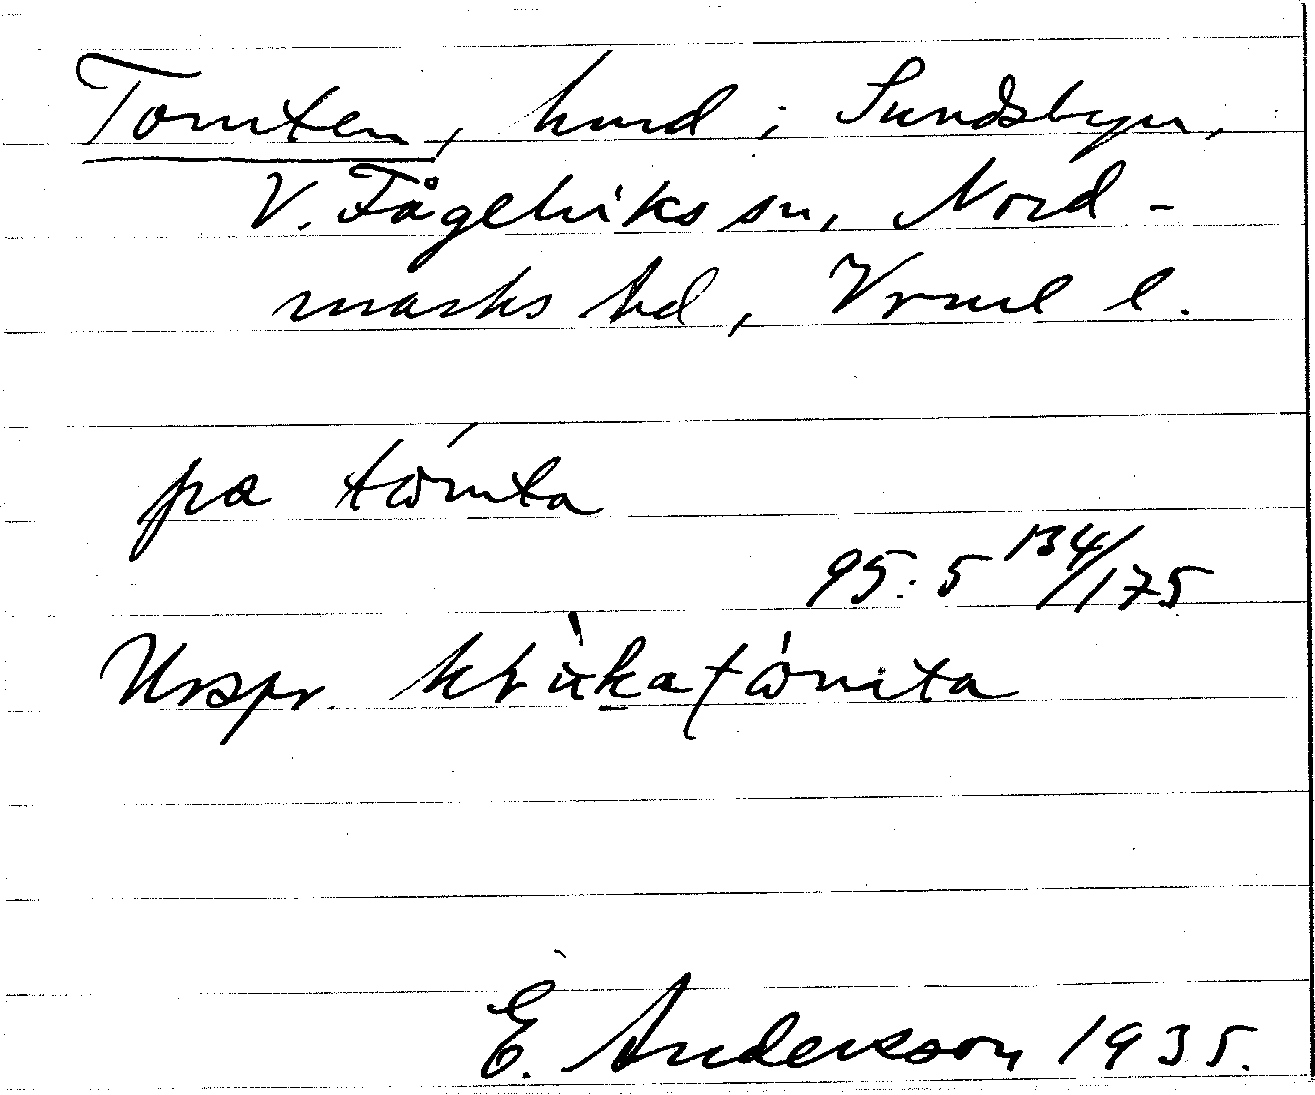 Tomten, hmd i Sundsbyn,
V. Fågelviks sn, Nord-
marks hd, Vrml l.
pa tómta
95:5 134/175
Urspr.
E. Andersson 1935.